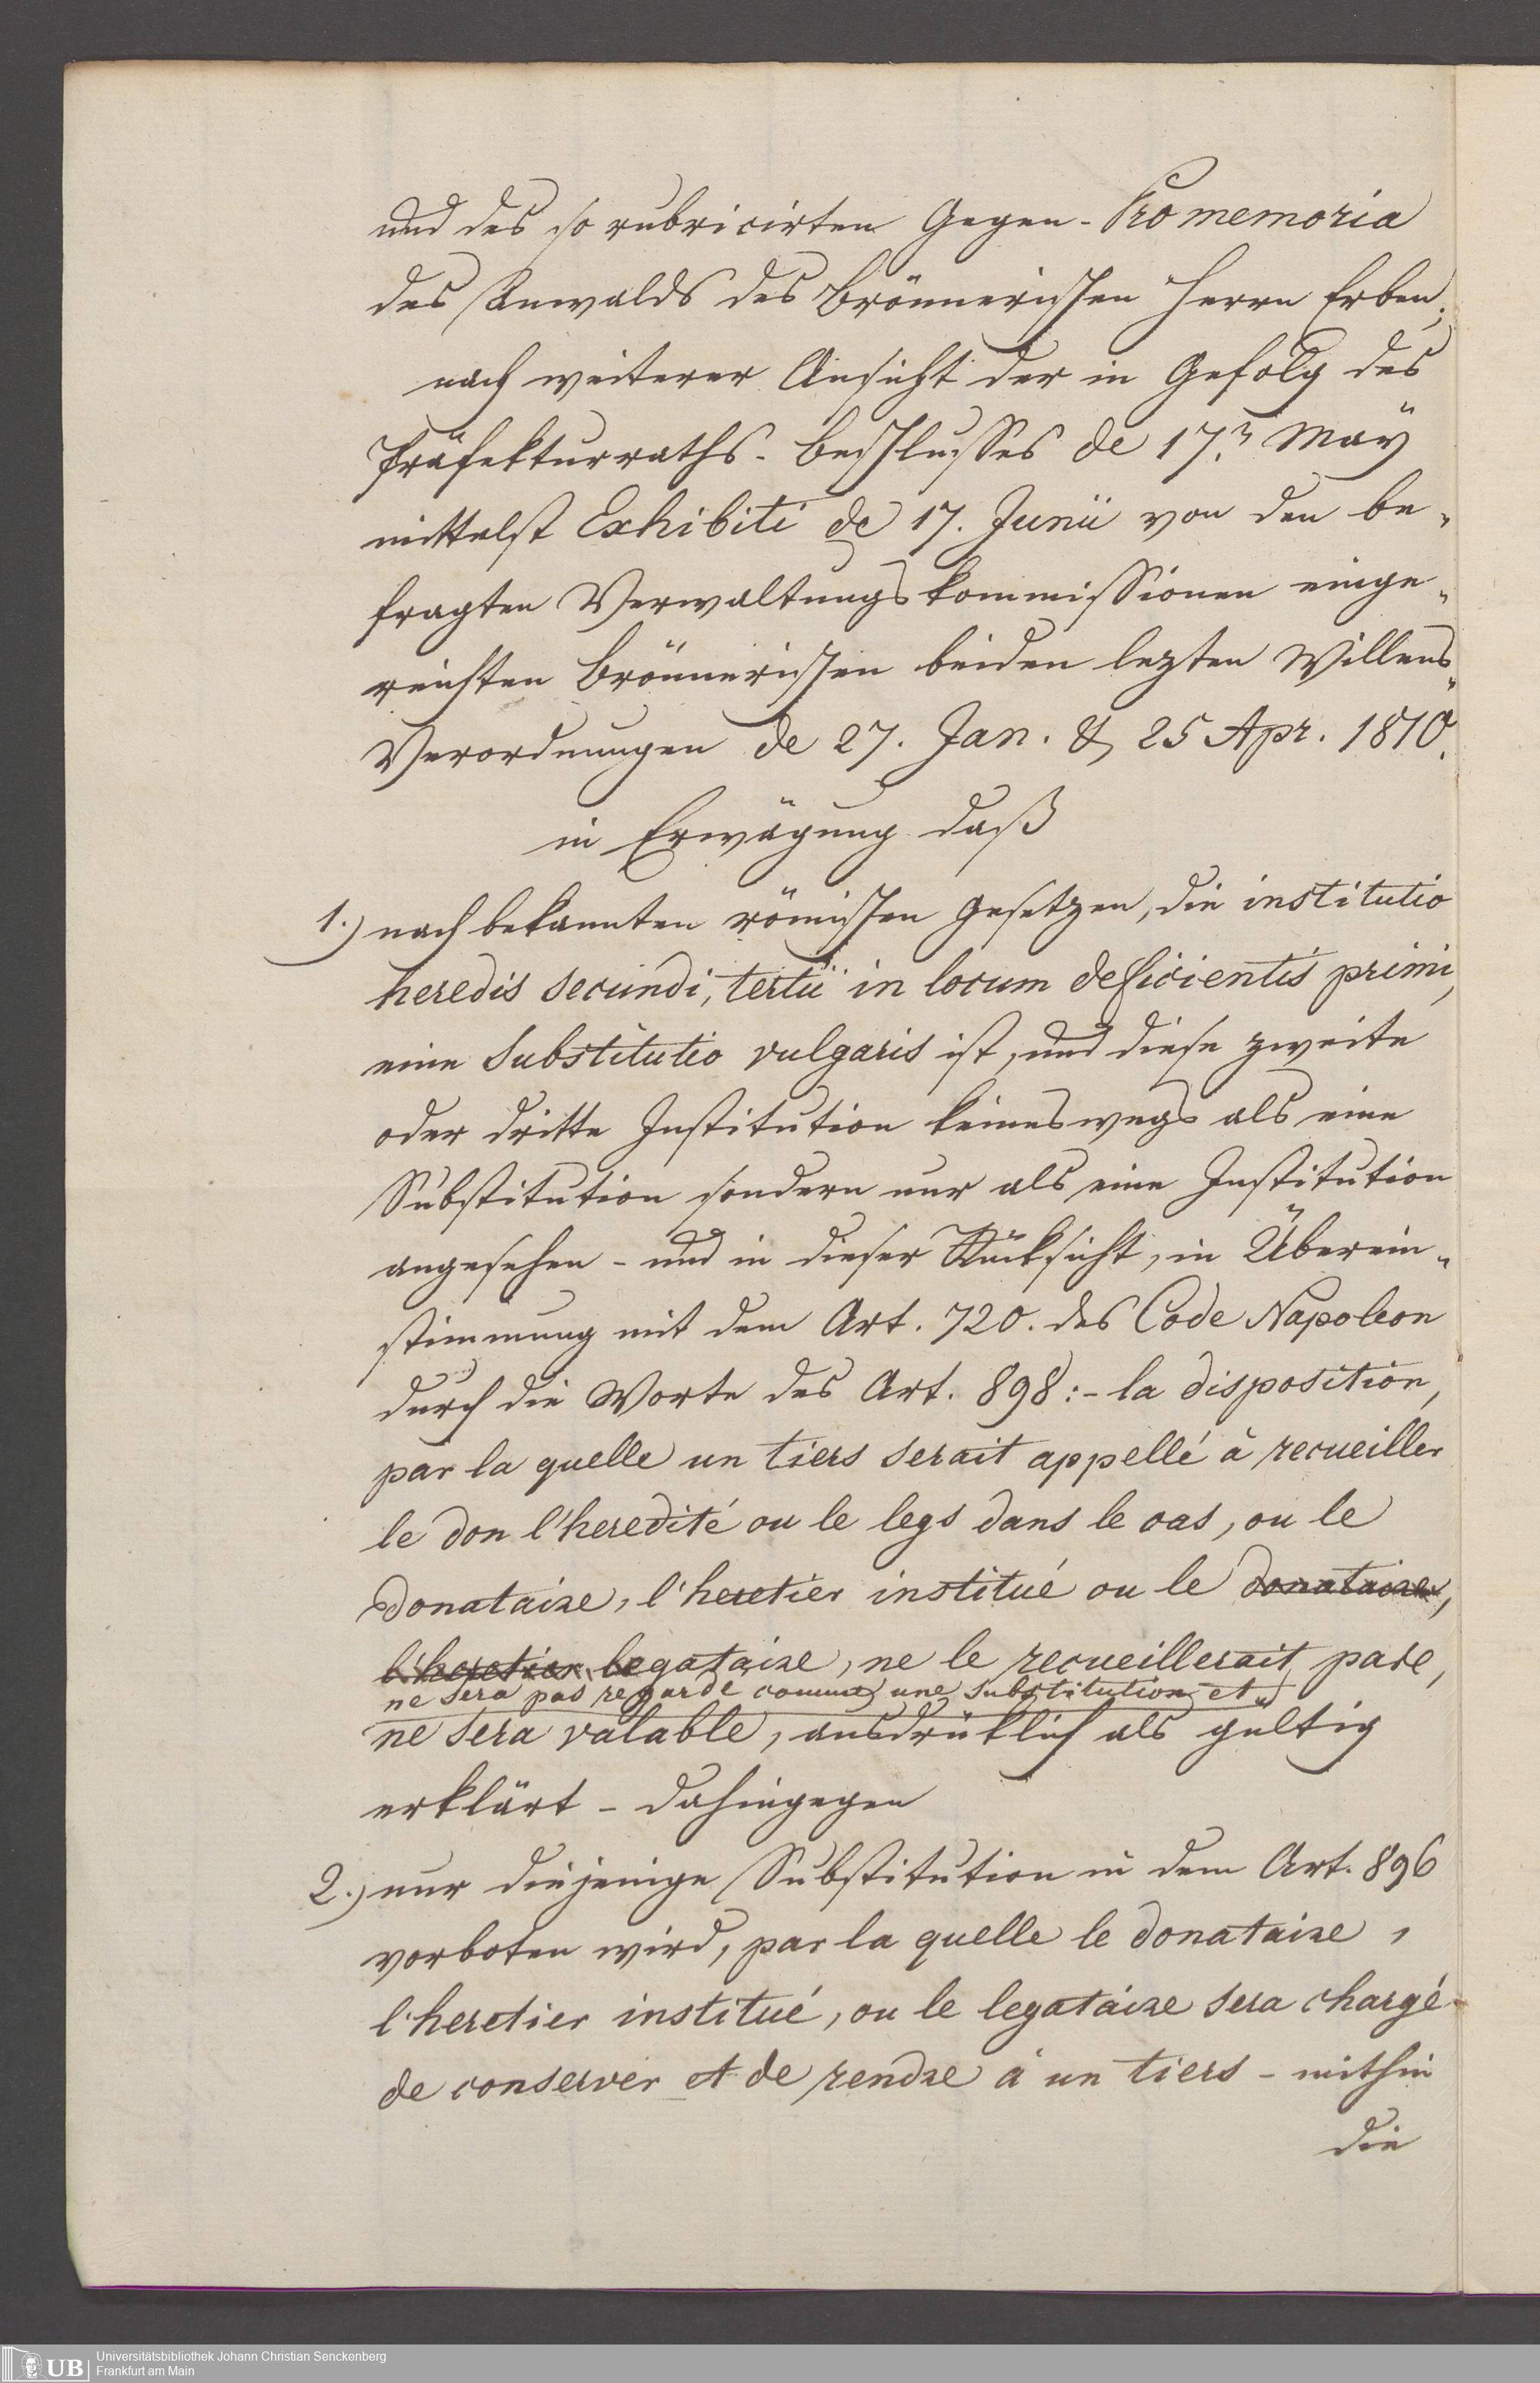 und des so rubricirten Gegen-Promemoria
des Anwalds des Brönnerischen Herrn Erben;
nach weiterer Ansicht der in Gefolg des
Präfekturraths-Beschlusses de 17.n May
mittelst Exhibiti de 17. Junii von den be-
fragten Verwaltungskommissionen einge-
reichten Brönnerischen beiden lezten Willens-
Verordnungen de 27. Jan. & 25 Apr. 1810.
in Erwägung daß
1.) nach bekannten römischen Gesetzen, die institutio
heredis secundi, tertii in locum deficientis primi,
eine Substitutio vulgaris ist, und diese zweite
oder dritte Institution keineswegs als eine
Substitution sondern nur als eine Institution
angesehen - und in dieser Rücksicht, in Überein-
stimmung mit dem Art. 720. des Code Napoleon
durch die Worte des Art. 898:- la disposition,
par la quelle un tiers serait appellé à recueiller
le don l'heredité ou le legs dans le cas, ou le
donataire, l'heretier institué ou le donataire,
l'heretier legataire, ne le recueillerait pase,
ne sera pas regardé comme une substitution et
ne sera valable, ausdrüklich als gültig
erklärt - dahingegen
2.) nur diejenige Substitution in dem Art. 896
verboten wird, par la quelle le donataire,
l'heretier institué, ou le legataire sera chargé
de conserver et de rendre à un tiers - mithin
die
UB Universitätsbibliothek Johann Christian Senckenberg
Frankfurt am Main